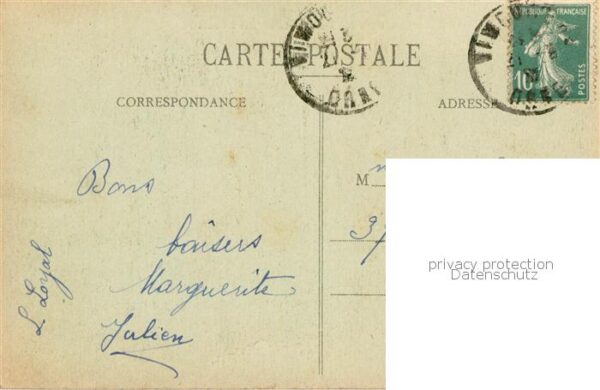 CARTE POSTALE
CORRESPONDANCE
ADRESSE
RÉPUBLIQUE FRANÇAISE
10
POSTES
VIMOU
ORNE
VIMOU
ORNE
M
3
Bons
baisers
Marguerite
Julien
L. Loyal
privacy protection
Datenschutz